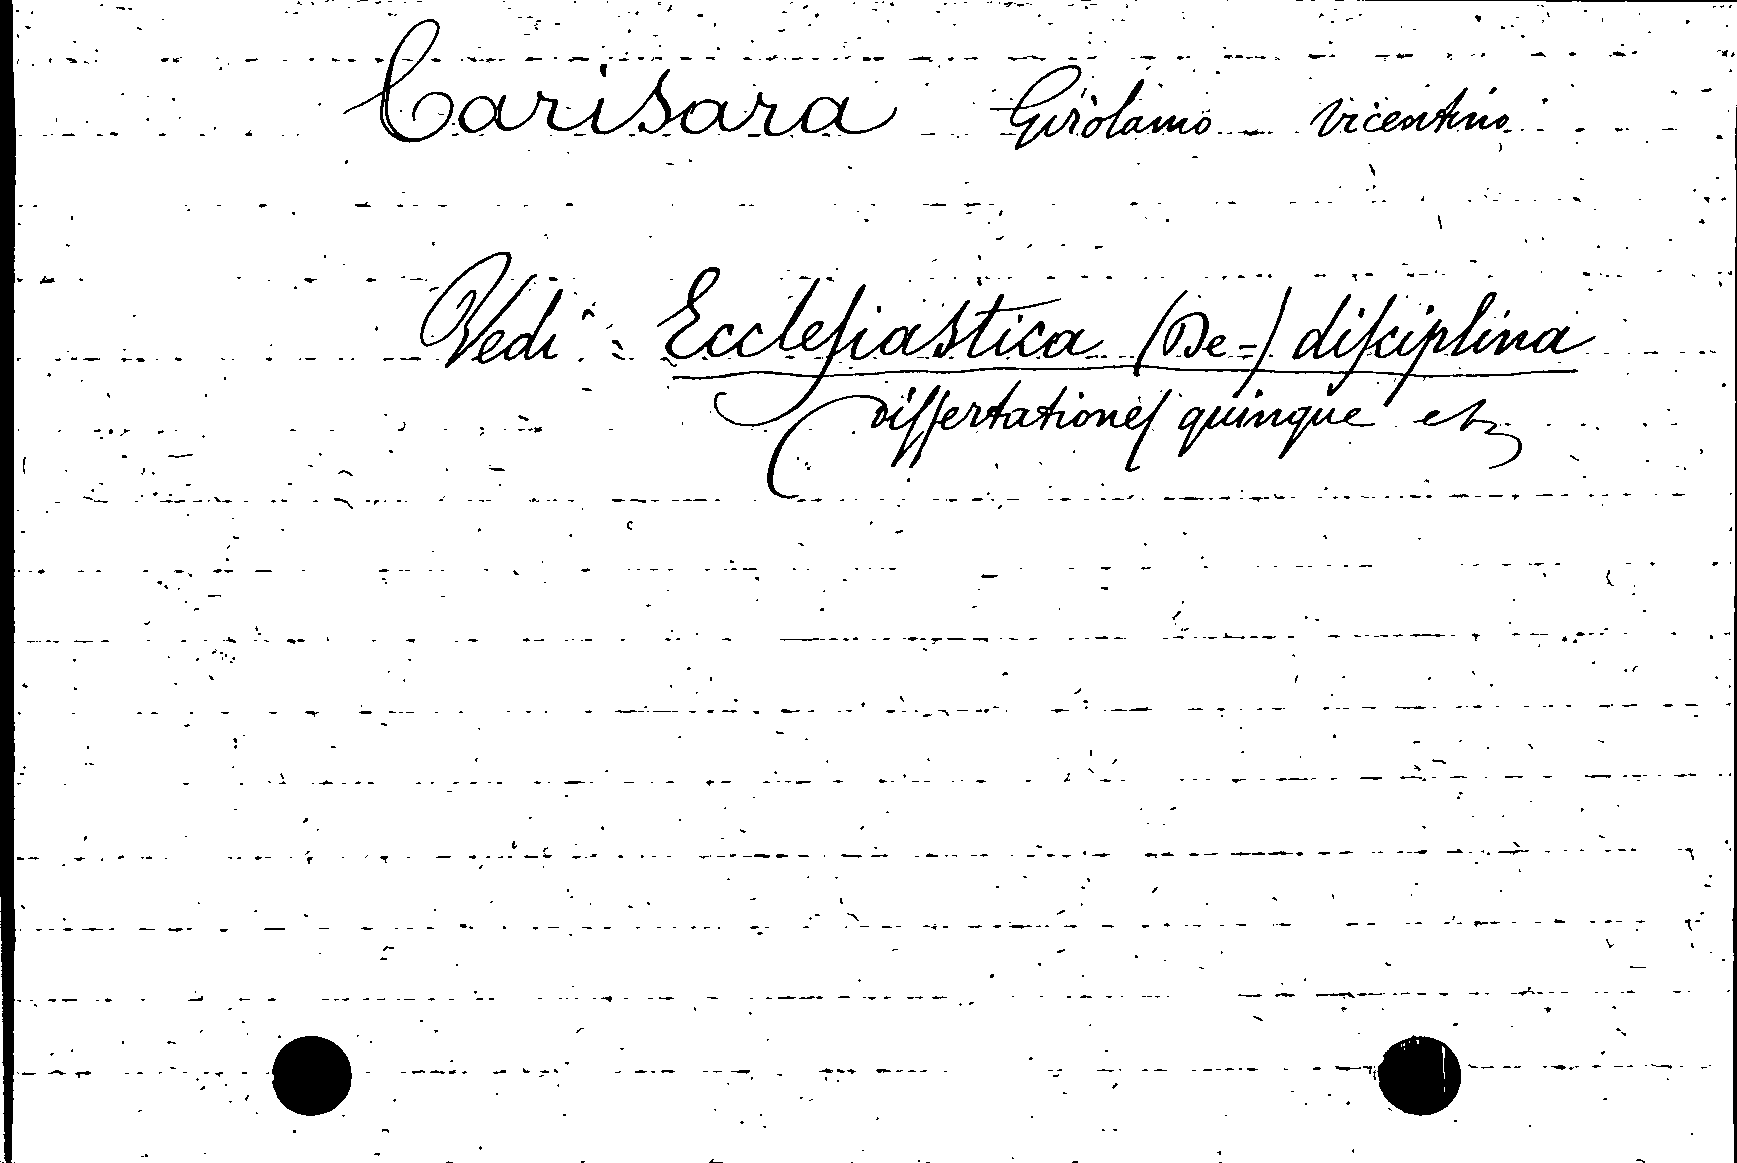 Carisara Girolamo vicentino
Vedi: Eccleſiastica (De=) diſciplina
diſſertationeſ quinque etc